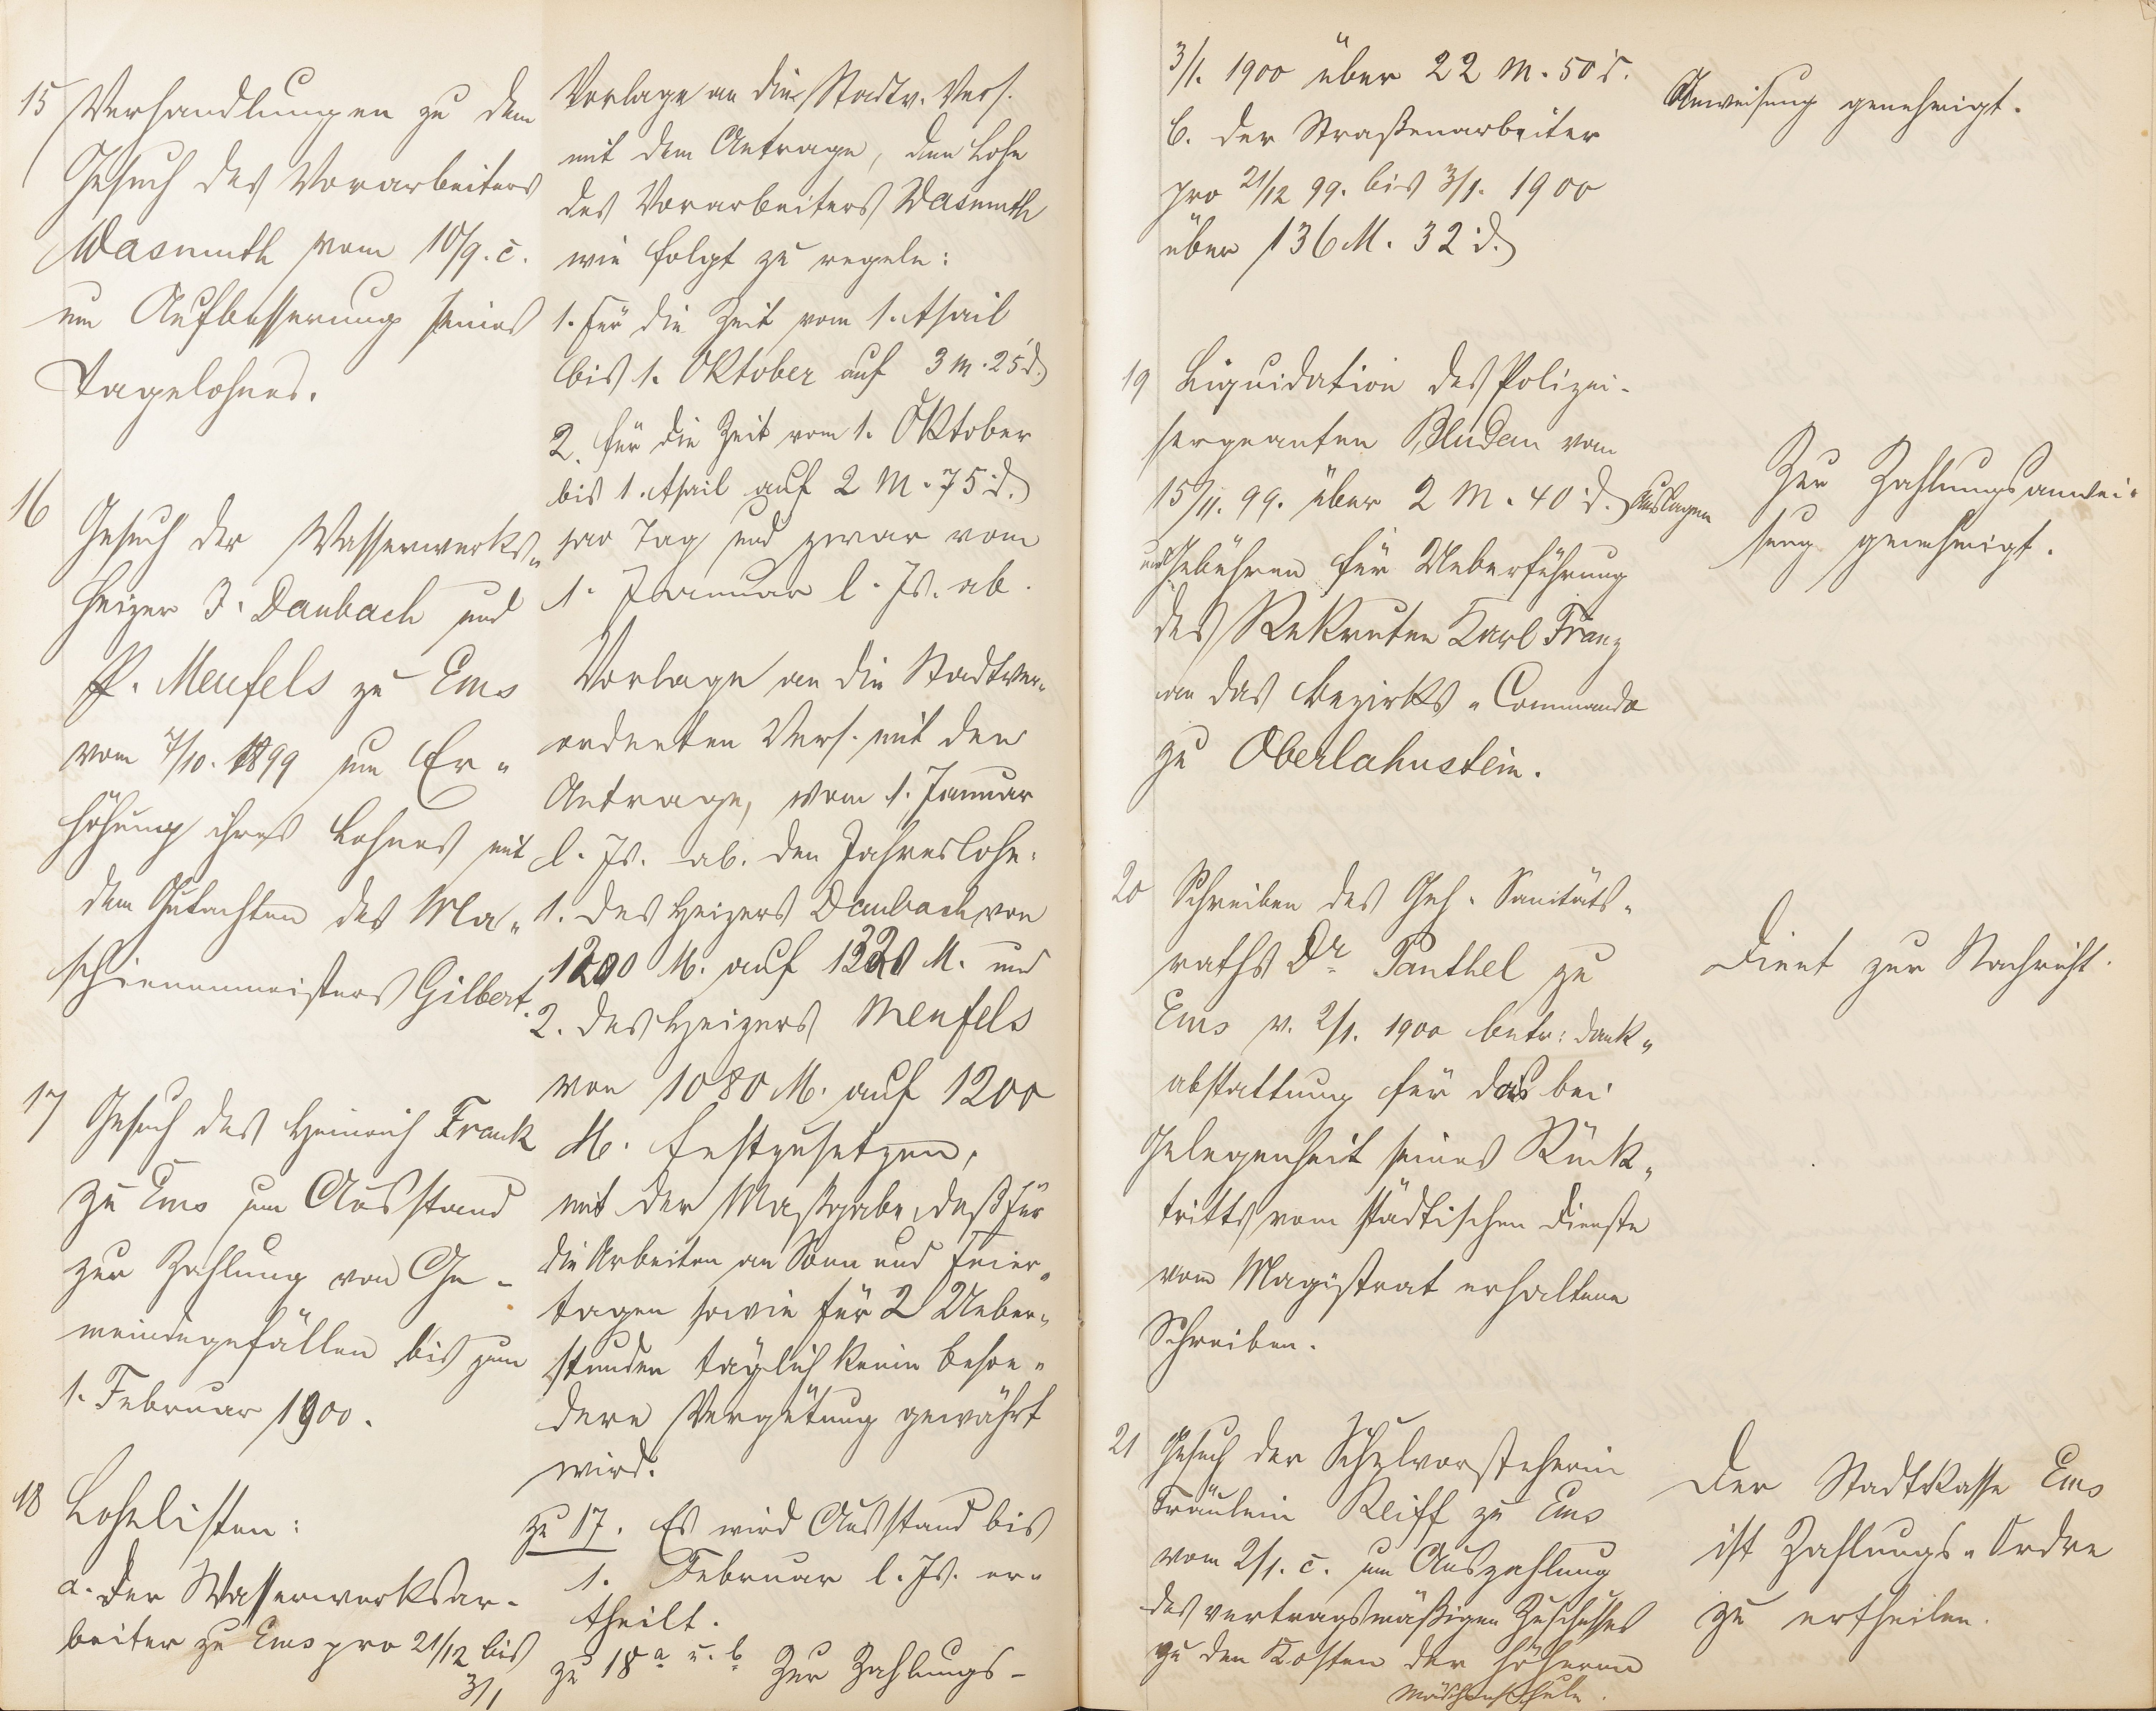 15 Verhandlungen zu dem
Gesuch des Vorarbeiters
Wasmuth vom 10/9. c.
um Aufbesserung seines
Tagelohnes.
Vorlage an die Stadtv. Vers.
mit dem Antrage, den Lohn
des Vorarbeiters Wasmuth
wie folgt zu regeln:
1. für die Zeit vom 1. April
bis 1. Oktober auf 3 M. 25 d.
2. für die Zeit vom 1. Oktober
bis 1. April auf 2 M. 75 d.
pro Tag und zwar vom
1. Januar l. Js. ab.
16
Gesuch der Wasserwerks-
heizer J. Daubach und
P. Meufels zu Ems
vom 7/10. 1899 um Er-
höhung ihres Lohnes mit
dem Gutachten des Ma-
schienenmeisters Gilbert.
Vorlage an die Stadtver-
ordneten Vers. mit dem
Antrage, vom 1. Januar
l. Js. ab. den Jahreslohn:
1. des Heizers Daubach von
1200 M. auf 1320 M. und
2. des Heizers Meufels
von 1080 M. auf 1200
M. festzusetzen,
mit der Maßgabe, daß für
die Arbeiten an Sonn und Feier-
tagen sowie für 2 Ueber-
stunden täglich keine beson-
dere Vergütung gewährt
wird.
17 Gesuch des Heinrich Frank
zu Ems um Ausstand
zur Zahlung von Ge-
meindegefällen bis zum
1. Februar 1900.
zu 17. Es wird Ausstand bis
1. Februar l. Js. er-
theilt.
18 Lohnlisten:
a. der Wasserwerksar-
beiter zu Ems pro 21/12 bis
3/1
zu 18 a u. b Zur Zahlungs-
3/1. 1900 über 22 M. 50 d.
b. der Straßenarbeiter
pro 21/12 99. bis 3/1. 1900
über 136 M. 32 d.
Anweisung genehmigt.
19 Liquidation des Polizei-
sergeanten Bludau vom
15/11. 99. über 2 M. 40 d. Auslagen
und Gebühren für Ueberführung
des Rekruten Karl Franz
an das Bezirks-Commando
zu Oberlahnstein.
Zur Zahlungsanwei-
sung genehmigt.
20 Schreiben des Geh. Sanitäts-
raths Dr. Panthel zu
Ems v. 2/1. 1900 betr: Dank-
abstattung für das bei
Gelegenheit seines Rück-
tritts vom städtischen Dienste
vom Magistrat erhaltene
Schreiben.
Dient zur Nachricht.
21 Gesuch der Schulvorsteherin
Fräulein Reiff zu Ems
vom 2/1. c. um Auszahlung
des vertragsmäßigen Zuschusses
zu den Kosten der höheren
Mädchenschule.
Der Stadtkasse Ems
ist Zahlungs-Ordre
zu ertheilen.